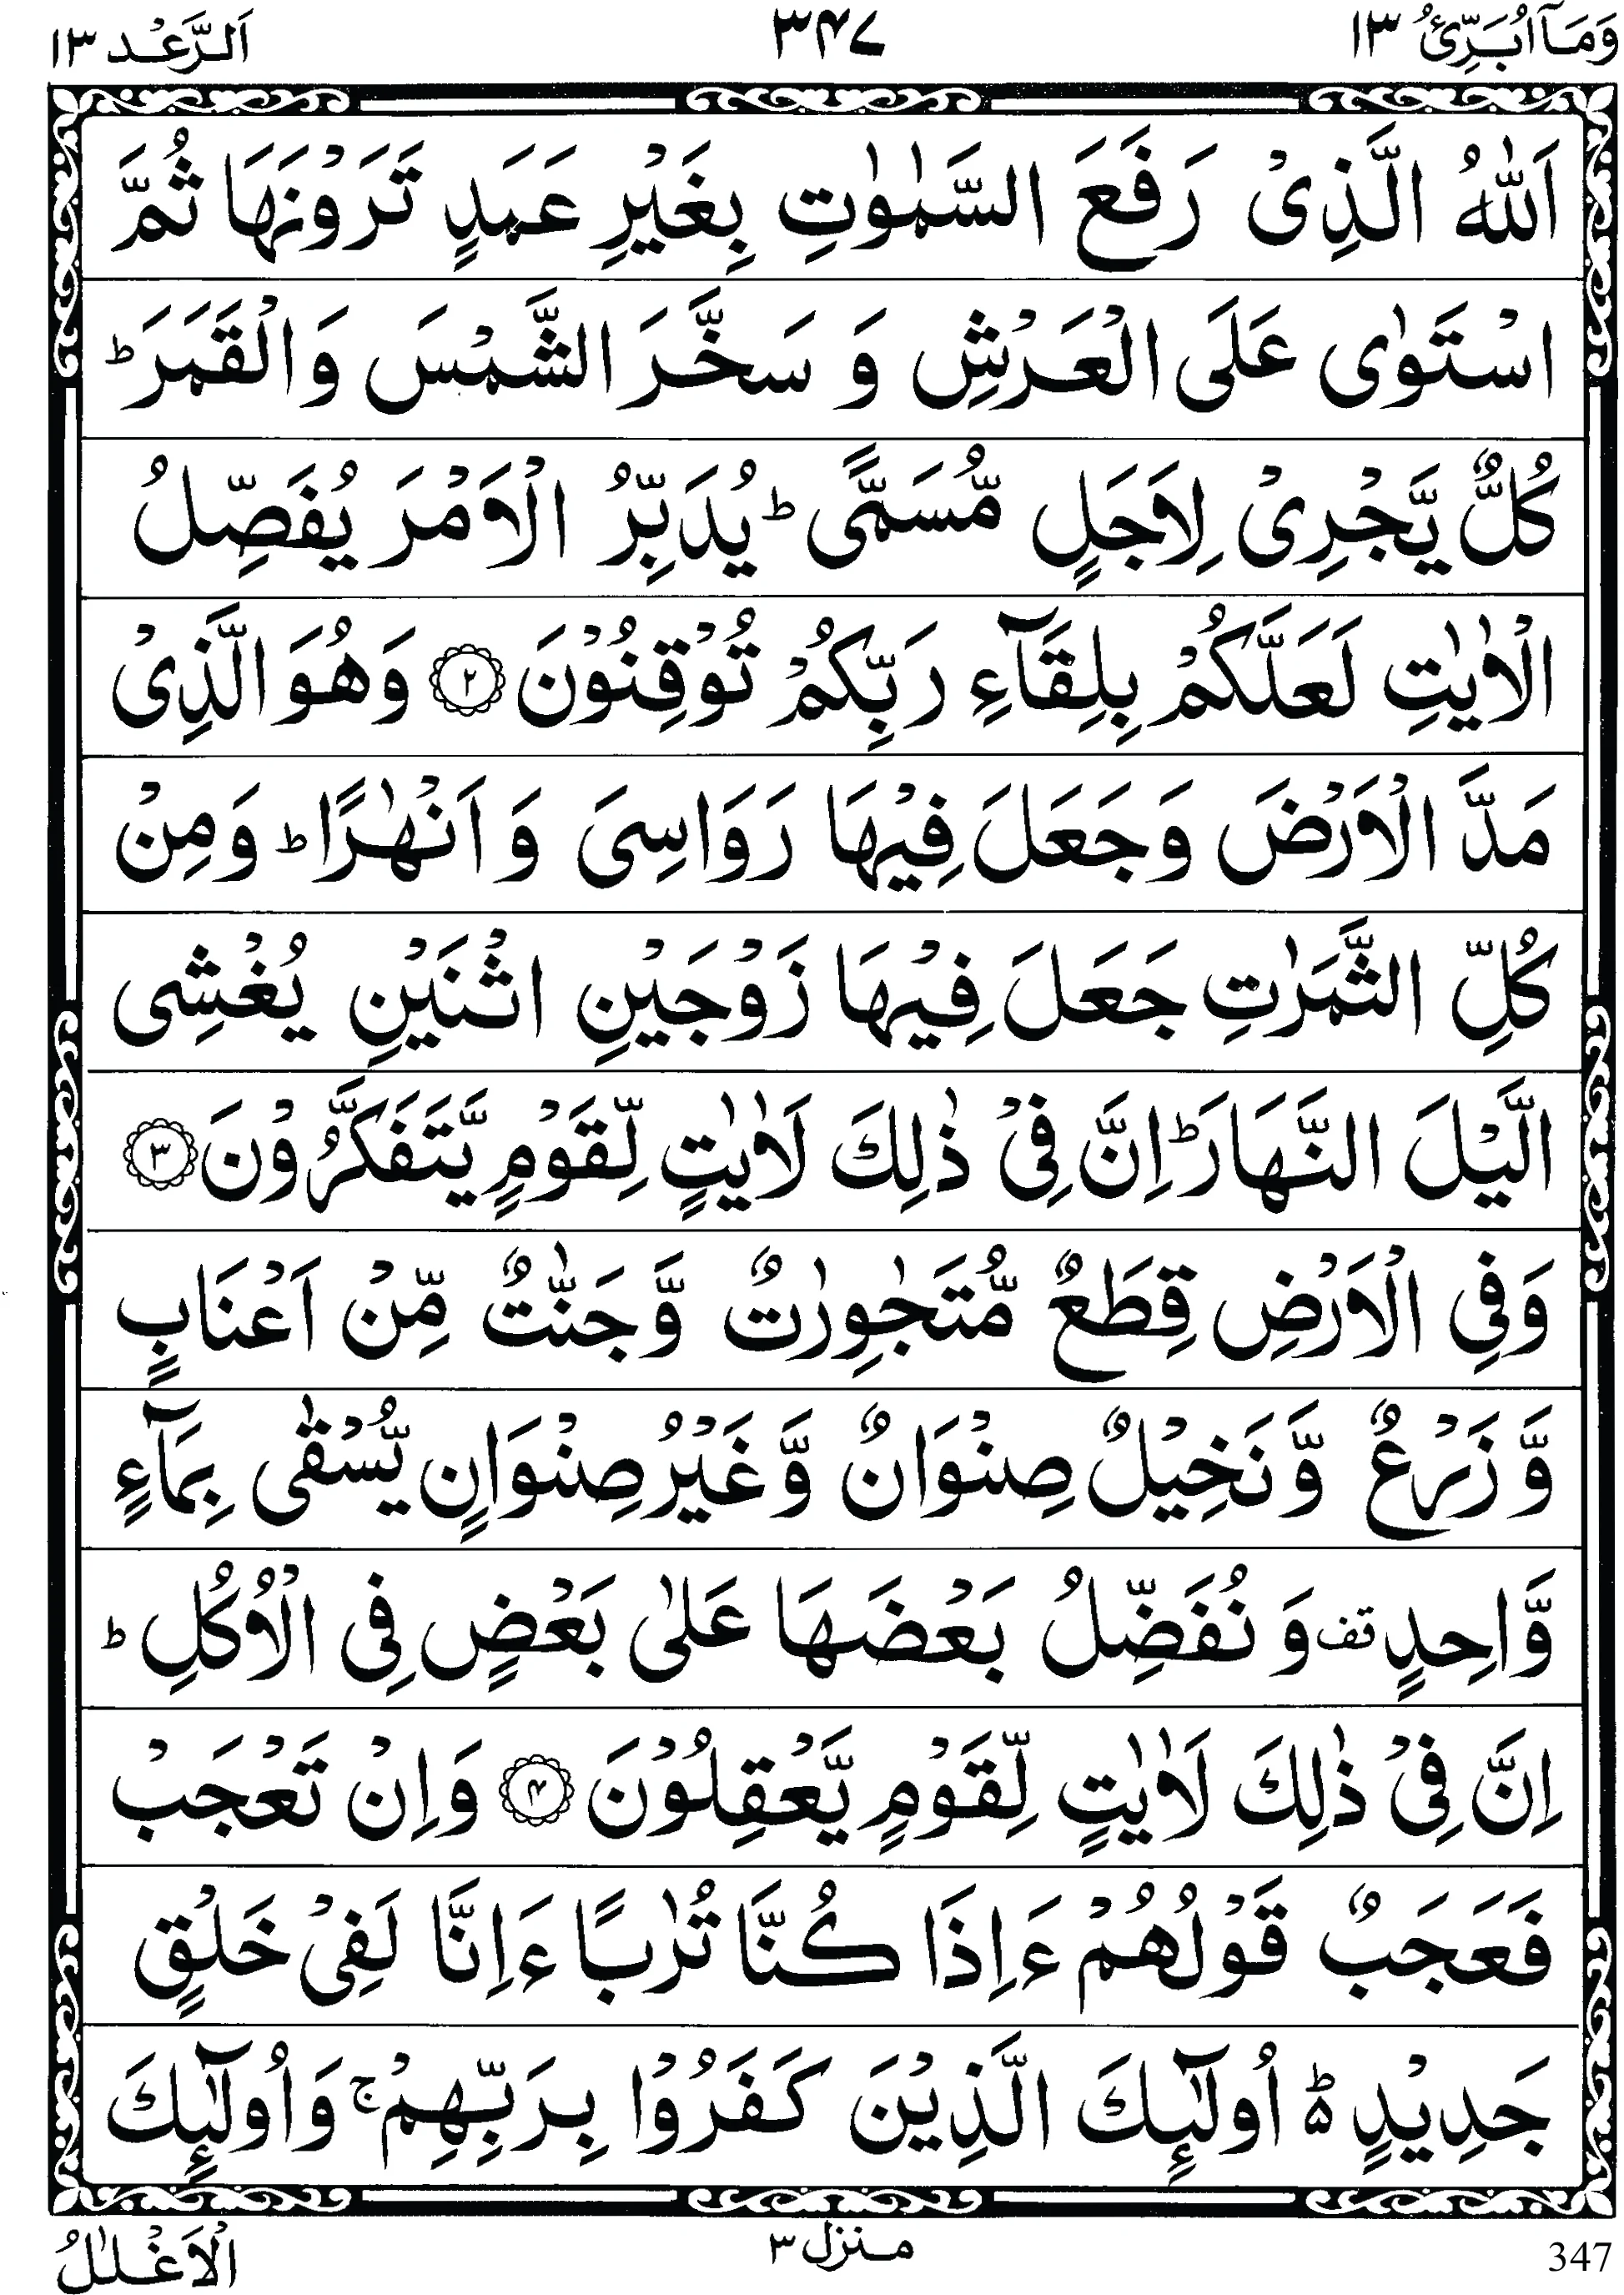 وَمَاۤ اُبَرِّئُ ١٣ ٣٤٧ اَلرَّعْد ١٣
اَللّٰهُ الَّذِیْ رَفَعَ السَّمٰوٰتِ بِغَیْرِ عَمَدٍ تَرَوْنَهَا ثُمَّ
اسْتَوٰی عَلَی الْعَرْشِ وَ سَخَّرَ الشَّمْسَ وَالْقَمَرَ ؕ
كُلٌّ یَّجْرِیْ لِاَجَلٍ مُّسَمًّی ؕ یُدَبِّرُ الْاَمْرَ یُفَصِّلُ
الْاٰیٰتِ لَعَلَّكُمْ بِلِقَآءِ رَبِّكُمْ تُوْقِنُوْنَ ۝٢ وَهُوَ الَّذِیْ
مَدَّ الْاَرْضَ وَجَعَلَ فِیْهَا رَوَاسِیَ وَ اَنْهٰرًا ؕ وَمِنْ
كُلِّ الثَّمَرٰتِ جَعَلَ فِیْهَا زَوْجَیْنِ اثْنَیْنِ یُغْشِی
الَّیْلَ النَّهَارَ ؕ اِنَّ فِیْ ذٰلِكَ لَاٰیٰتٍ لِّقَوْمٍ یَّتَفَكَّرُوْنَ ۝٣
وَفِی الْاَرْضِ قِطَعٌ مُّتَجٰوِرٰتٌ وَّجَنّٰتٌ مِّنْ اَعْنَابٍ
وَّ زَرْعٌ وَّنَخِیْلٌ صِنْوَانٌ وَّغَیْرُ صِنْوَانٍ یُّسْقٰی بِمَآءٍ
وَّاحِدٍ تف وَ نُفَضِّلُ بَعْضَهَا عَلٰی بَعْضٍ فِی الْاُكُلِ ؕ
اِنَّ فِیْ ذٰلِكَ لَاٰیٰتٍ لِّقَوْمٍ یَّعْقِلُوْنَ ۝٤ وَاِنْ تَعْجَبْ
فَعَجَبٌ قَوْلُهُمْ ءَاِذَا كُنَّا تُرٰبًا ءَاِنَّا لَفِیْ خَلْقٍ
جَدِیْدٍ ۬ؕ اُولٰٓىِٕكَ الَّذِیْنَ كَفَرُوْا بِرَبِّهِمْ ۚ وَاُولٰٓىِٕكَ
الْاَغْلٰلُ
منزل ٣
347